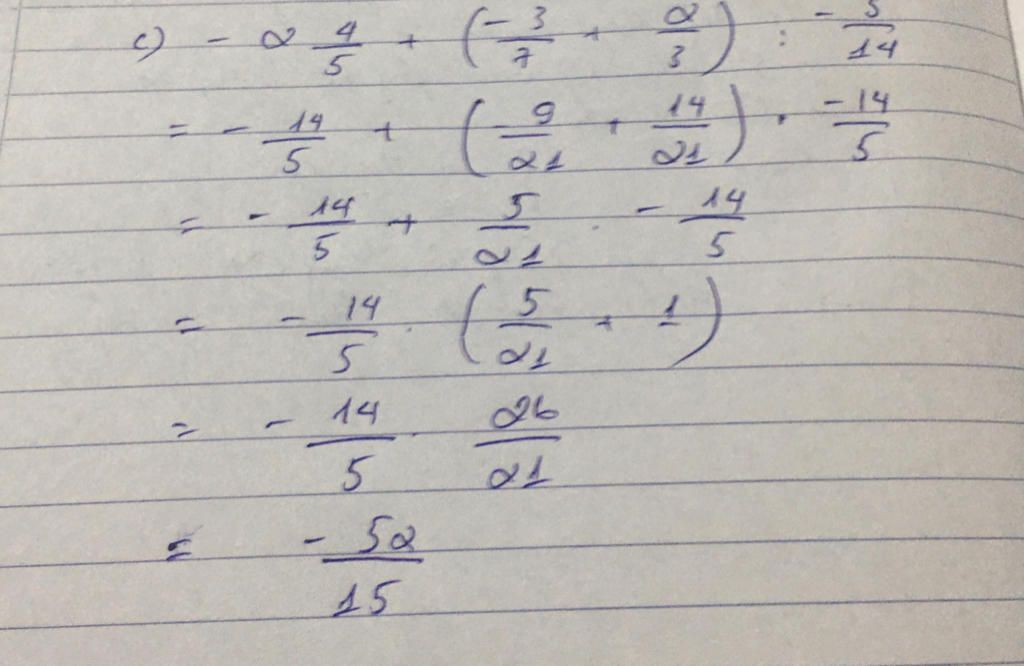 c) - 2 4/5 + (-3/7 + 2/3) : -5/14
= - 14/5 + (-9/21 + 14/21) . -14/5
= - 14/5 + 5/21 . - 14/5
= - 14/5 . (5/21 + 1)
= - 14/5 . 26/21
= - 52/15